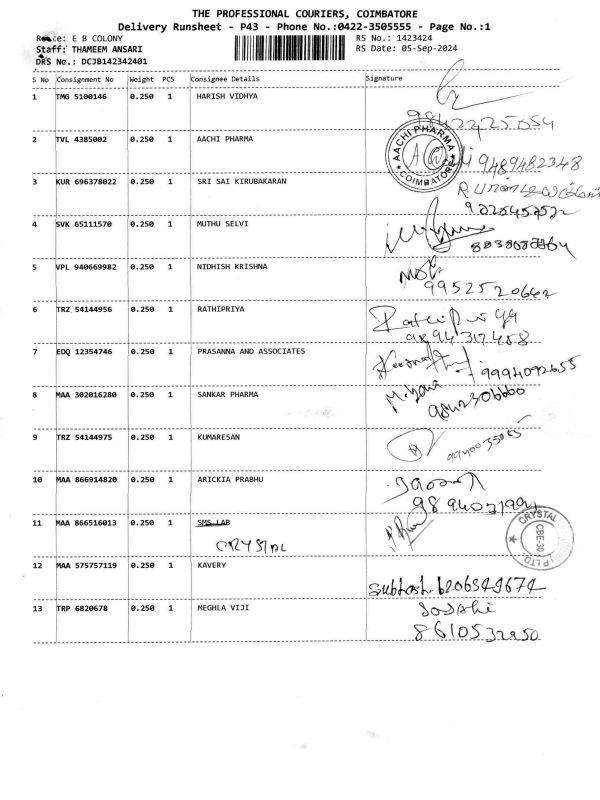 THE PROFESSIONAL COURIERS, COIMBATORE
Delivery Runsheet - P43 - Phone No.:0422-3505555 - Page No.:1
E B COLONY
RS No.: 1423424
Staff: THAMEEM ANSARI
RS Date: 05-Sep-2024
DRS No.: DCJB142342401
S No Consignment No Weight PCS Consignee Details Signature
1 TMG 5100146 0.250 1 HARISH VIDHYA
9842225054
2 TVL 4385002 0.250 1 AACHI PHARMA
AACHI PHARMA COIMBATORE
9489482348
3 KUR 696378022 0.250 1 SRI SAI KIRUBAKARAN
4 SVK 65111570 0.250 1 MUTHU SELVI
5 VPL 940669982 0.250 1 NIDHISH KRISHNA
9952520662
6 TRZ 54144956 0.250 1 RATHIPRIYA
7 EDQ 12354746 0.250 1 PRASANNA AND ASSOCIATES
9994092655
8 MAA 302016280 0.250 1 SANKAR PHARMA
9842306660
9 TRZ 54144975 0.250 1 KUMARESAN
10 MAA 866914820 0.250 1 ARICKIA PRABHU
11 MAA 866516013 0.250 1 SMS LAB
CRYSTAL
CRYSTAL CBE-30
12 MAA 575757119 0.250 1 KAVERY
Subhash 6206549674
13 TRP 6820678 0.250 1 MEGHLA VIJI
8610532950